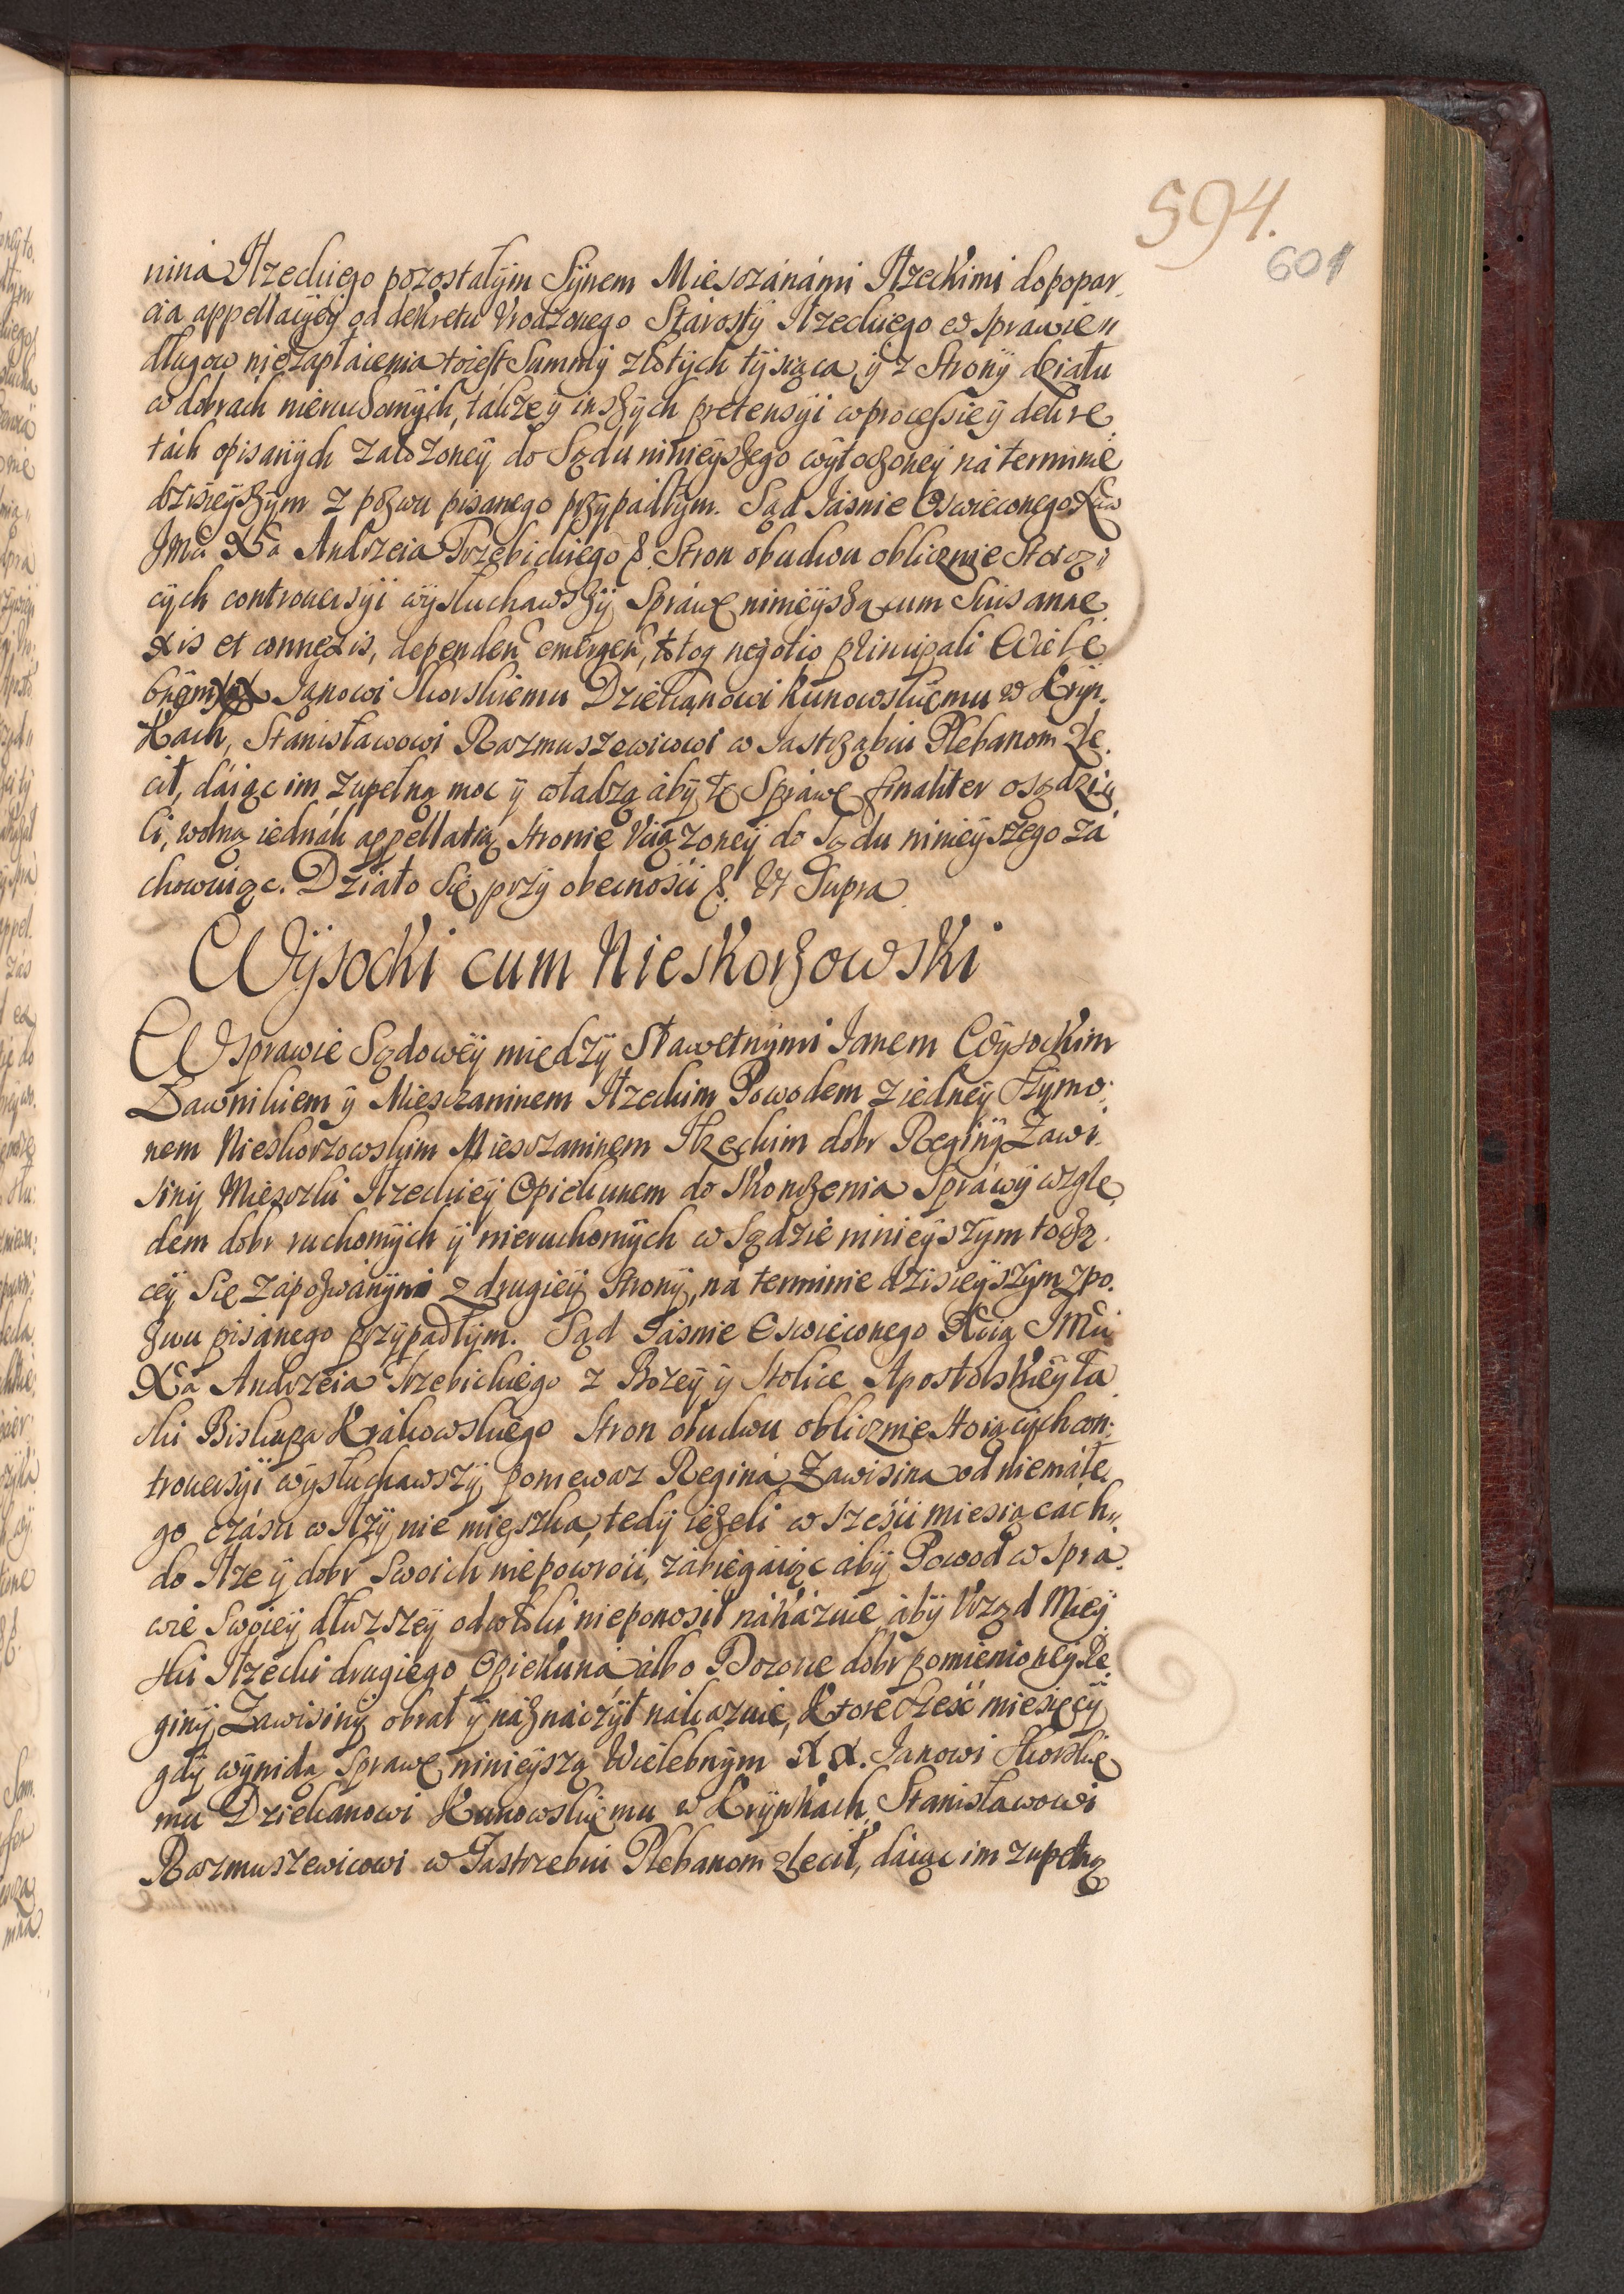 594.
601
nina Ilzeckiego pozostałym Synem Miesczánámi Ilzeckimi do popar„
cia appellacyey od dekretu Vrodzonego Stárosty Ilzeckiego w sprawie
długow niezapłácenia toiest Summy złotych tysiąca, y z Strony działu
w dobrach nieruchomych, tákze y inszych pretensyi w processie y dekre„
tách opisanych załozoney do Sądu ninieyszego wytoczoney ná terminie
dzisieyszym z pozwu pisanego przypádłym. Sąd Iásnie Oswieconego
JMci Xa Andrzeia Trzebickiego &. Stron obudwu oblicznie Stoią„
cych controuersyi wysłuchawszy Spráwę ninieyszą cum Suis anne„
xis et connexis, dependen emergen, totoq negotio principali Wiele„
bnym XX Janowi Skorskiemu Dziekanowi Kunowskiemu w Kryn„
kach, Stanisławowi Razmuszewicowi w Jastrząbiu Plebanom Zle„
cił, dáiąc im zupełną moc y władzą áby tę Spráwę finaliter osądzi„
li, wolną iednák appellatią Stronie Vciązoney do Sądu ninieyszego zá
chowuiąc. Działo się przy obecności &. Vt Supra
Wysocki cum Nieskorzowski
W sprawie Sądowey między Sławetnymi Janem Wysockim
Ławnikiem y Miesczaninem Ilzeckim Powodem z iedney Szymo„
nem Nieskorzowskim Miesczaninem Ilzeckim dobr Reginy Zawi„
siny Miesczki Ilzeckiey Opiekunem do Skonczenia Spráwy wzglę„
dem dobr ruchomych y nieruchomych w Sądzie ninieyszym toczą„
cey Się zápozwánym z drugiey Strony, ná terminie dzisieyszym z po„
zwu pisánego przypadłym. Sąd Iásnie Oswieconego Xcia JMci
Xa Andrzeia Trzebickiego z Bozey y Stolice Apostolskiey ła„
ski Biskupa Krákowskiego Stron obudwu oblicznie Stoiących con„
trouersyi wysłuchawszy, poniewaz Regina Zawisina od niemáłe„
go czásu w Ilzy nie mieszka, tedy iezeli w sześci miesiącách„
do Ilze y dobr Swoich niepowroci, zábiegáiąc áby Powod w Spra„
wie Swoiey dłuzszey odwłoki nieponosił nákázuie, áby Vrząd Miey„
ski Ilzecki drugiego Opiekuná álbo Dozorce dobr pomienioney Re„
giny Zawisiny obrał y náznaczył nákazuie, Ktore sześć miesięcy
gdy wynidą Sprawę ninieyszą Wielebnym XX. Janowi Skorskie„
mu Dziekanowi Kunowskiemu w Krynkach, Stanisławowi
Razmuszewicowi w Jastrzebiu Plebanom zlecił, dáiąc im zupełną